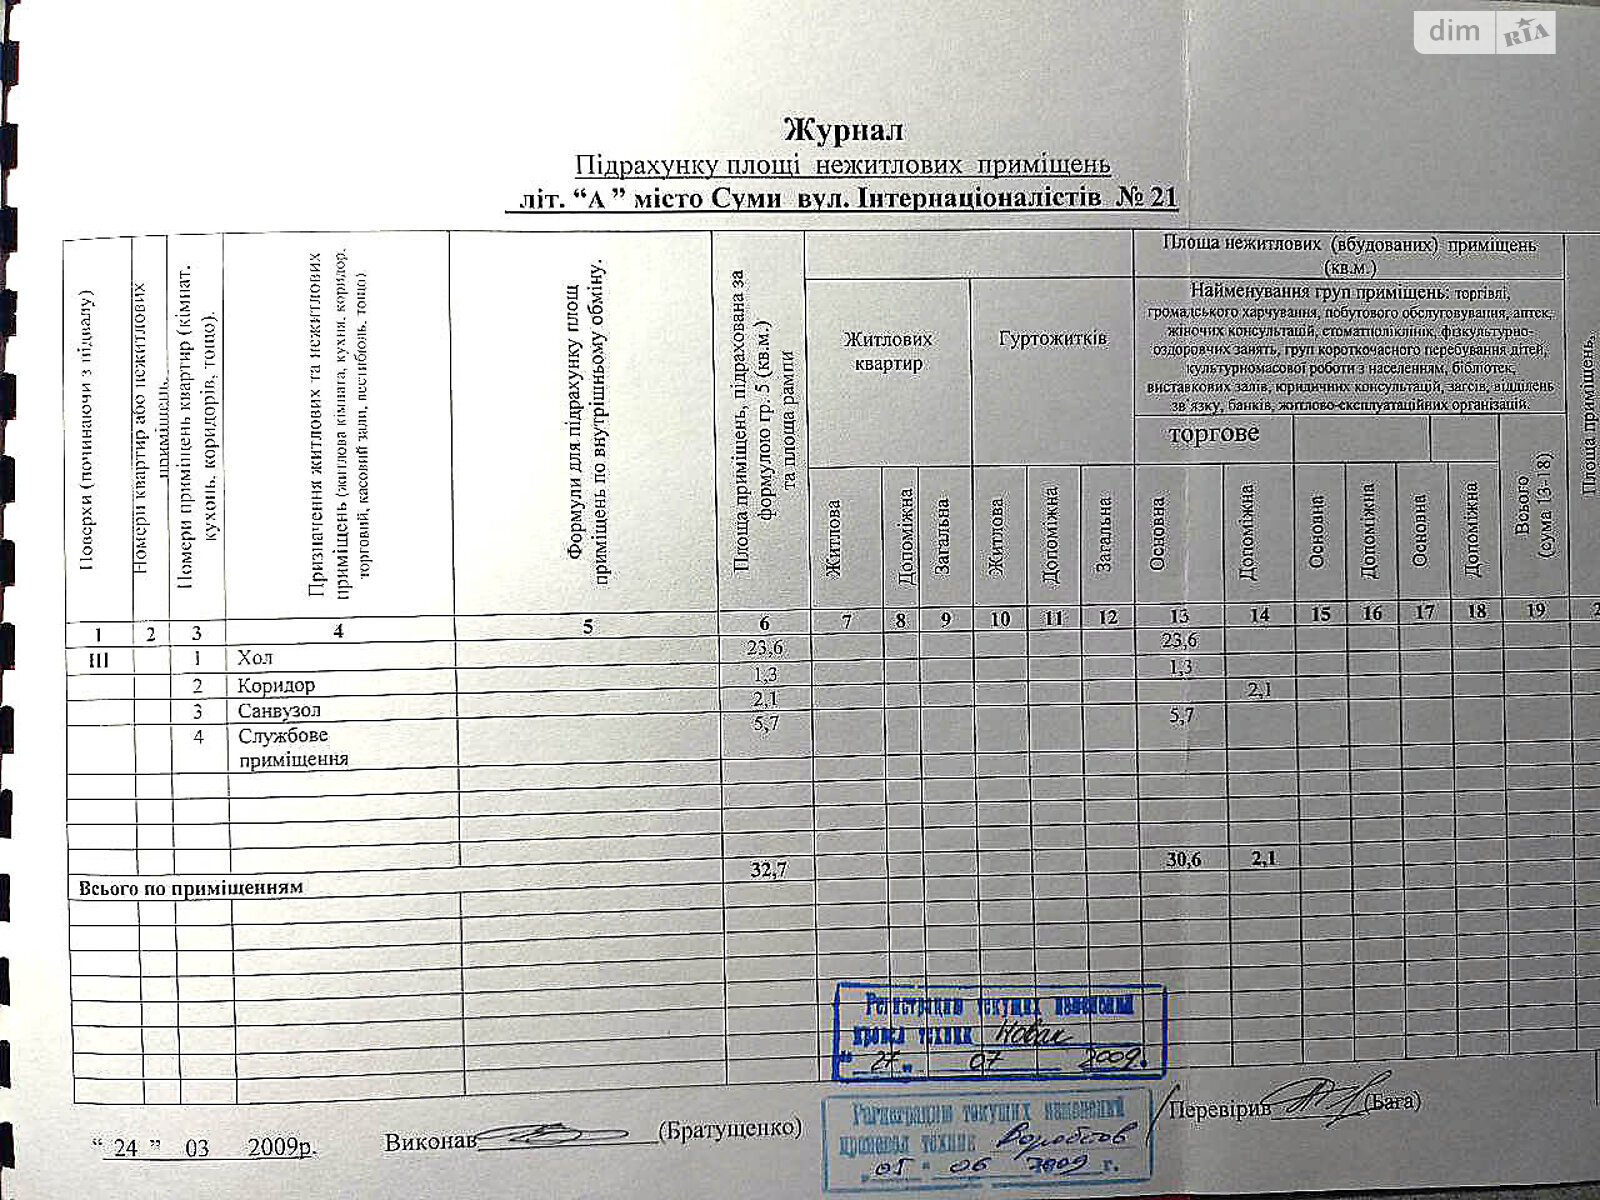 dim RIA
Журнал
Підрахунку площі нежитлових приміщень
літ. “А” місто Суми вул. Інтернаціоналістів № 21
Поверхи (починаючи з підвалу)
Номери квартир або нежитлових
приміщень.
Номери приміщень квартир (кімнат.
кухонь, коридорів, тощо).
Призначення житлових та нежитлових
приміщень (житлова кімната, кухня, коридор.
торговий, касовий зали, вестибюль, тощо)
Формули для підрахунку площ
приміщень по внутрішньому обміну.
Площа приміщень, підрахована за
формулою гр. 5 (кв.м.)
та площа рампи
Житлових
квартир
Гуртожитків
Площа нежитлових (вбудованих) приміщень
(кв.м.)
Найменування груп приміщень: торгівлі,
громадського харчування, побутового обслуговування, аптек,
жіночих консультацій, стоматполіклінік, фізкультурно-
оздоровчих занять, груп короткочасного перебування дітей,
культурномасової роботи з населенням, бібліотек,
виставкових залів, юридичних консультацій, загсів, відділень
зв’язку, банків, житлово-експлуатаційних організацій.
торгове
Житлова
Допоміжна
Загальна
Житлова
Допоміжна
Загальна
Основна
Допоміжна
Основна
Допоміжна
Основна
Допоміжна
Всього
(сума 13-18)
Площа приміщень,
1 2 3 4 5 6 7 8 9 10 11 12 13 14 15 16 17 18 19 2
III 1 Хол 23,6 23,6
2 Коридор 1,3 1,3
3 Санвузол 2,1 2,1
4 Службове 5,7 5,7
приміщення
Всього по приміщенням 32,7 30,6 2,1
Регистрацию текущих изменений
провел техник Новак
“ 27 „ 07 2009.
Регистрацию текущих изменений
провел техник Воробьов
„ 05 " 06 2009 г.
“ 24 ” 03 2009р.
Виконав (Братущенко)
Перевірив (Бага)